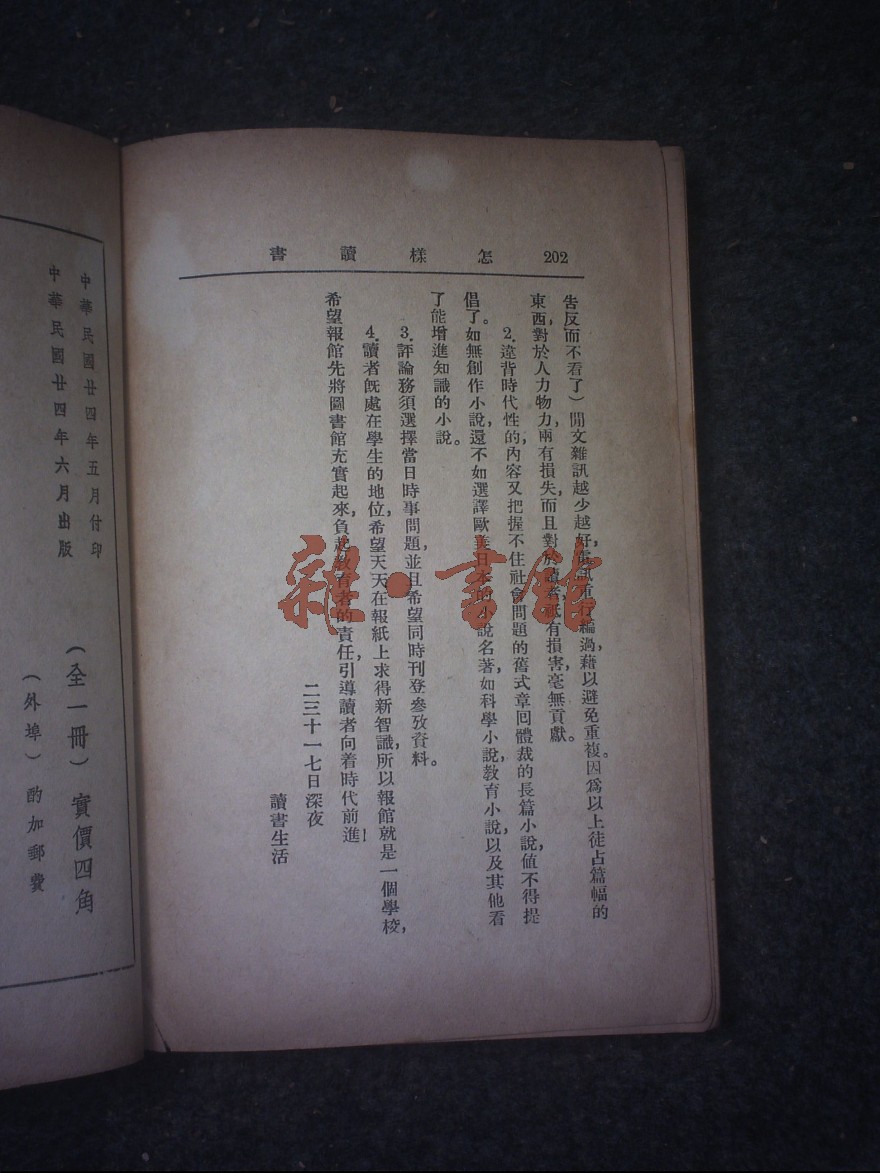 202 怎樣讀書
告反而不看了）閒文雜訊越少越好，電訊重行編過，藉以避免重複。因爲以上徒占篇幅的
東西，對於人力物力，兩有損失，而且對於讀者，祇有損害，毫無貢獻。
2.違背時代性的，內容又把握不住社會問題的舊式章囘體裁的長篇小說，値不得提
倡了。如無創作小說，還不如選譯歐美日本的小說名著，如科學小說，敎育小說，以及其他看
了能增進知識的小說。
3.評論務須選擇當日時事問題，並且希望同時刊登參攷資料。
4.讀者旣處在學生的地位，希望天天在報紙上求得新智識，所以報館就是一個學校，
希望報館先將圖書館充實起來，負起敎育者的責任，引導讀者向着時代前進！
二三十一七日深夜
讀書生活
中華民國廿四年五月付印
中華民國廿四年六月出版
（全一冊）實價四角
（外埠）酌加郵費
雜·書館